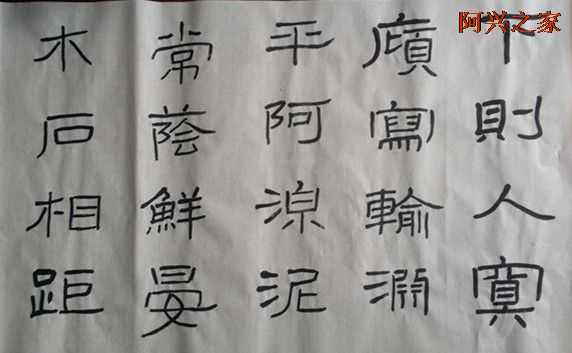 阿兴之家
下則入冥
廎寫輸淵
平阿湶泥
常蔭鮮晏
木石相距